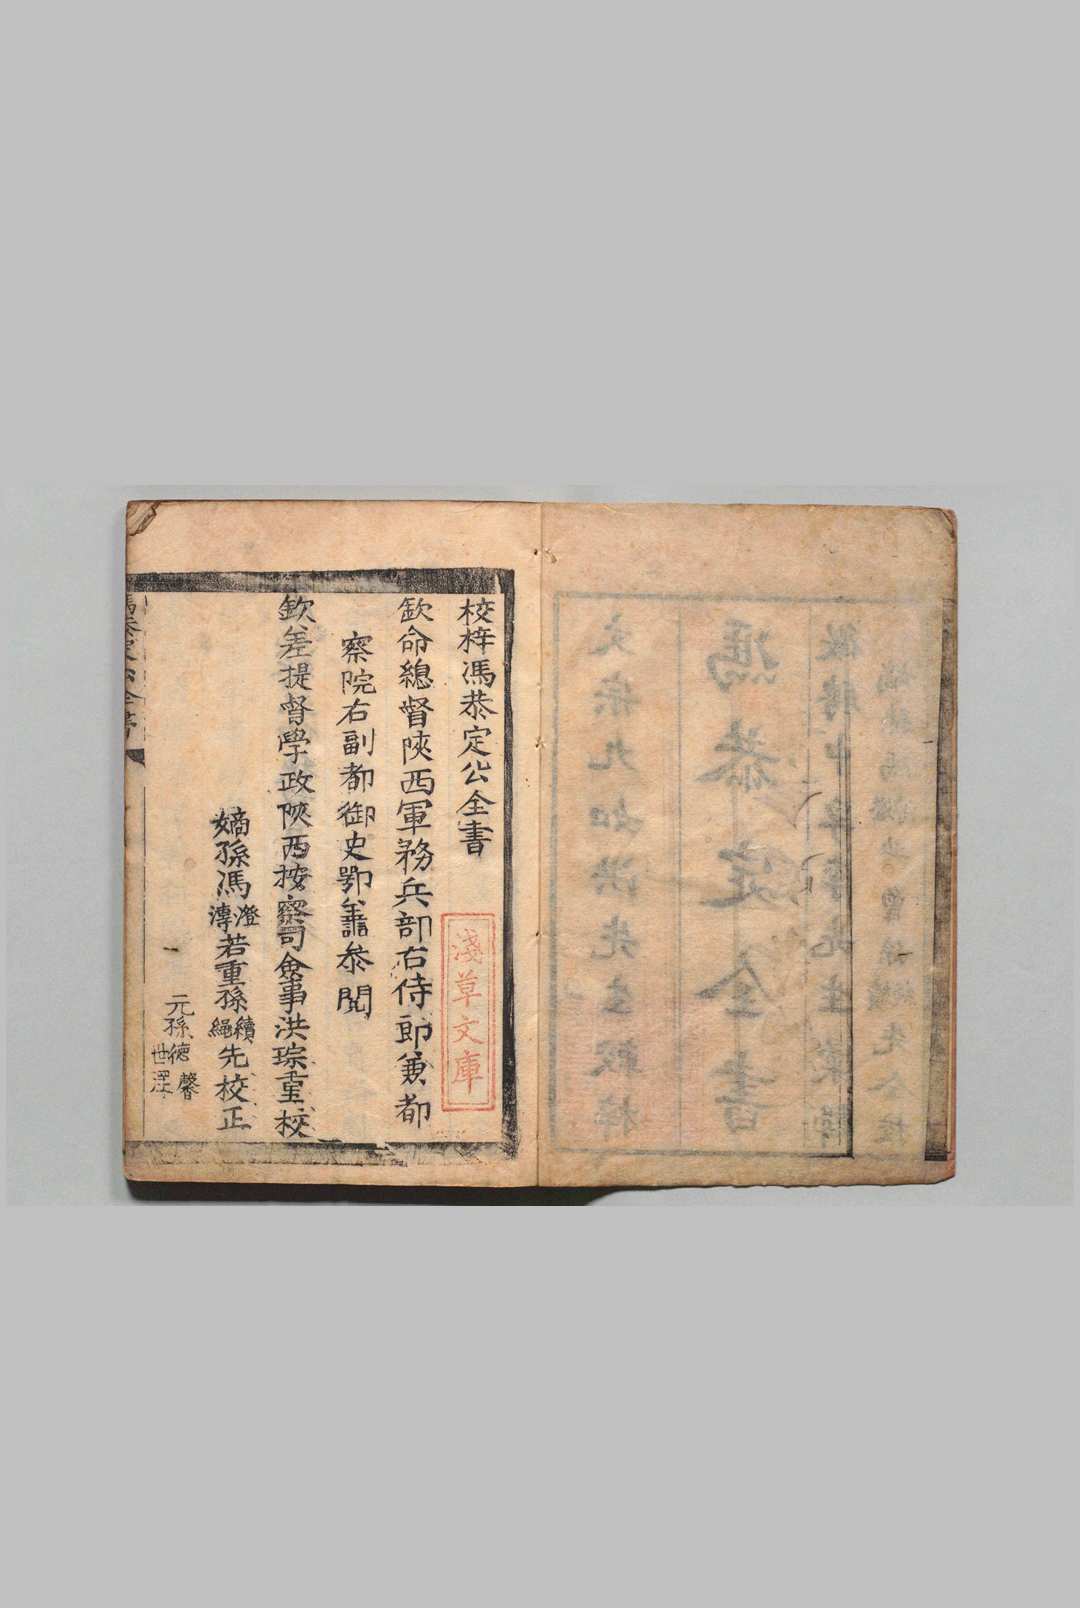 校梓馮恭定公全書
淺草文庫
欽命總督陝西軍務兵部右侍郎兼都
察院右副都御史鄂善叅閱
欽差提督學政陝西按察司僉事洪琮重校
嫡孫馮澄
漙若重孫續
繩先校正
元孫德馨
世澤
馮恭定公全書
馮恭定全書
文宗九如洪先生較梓